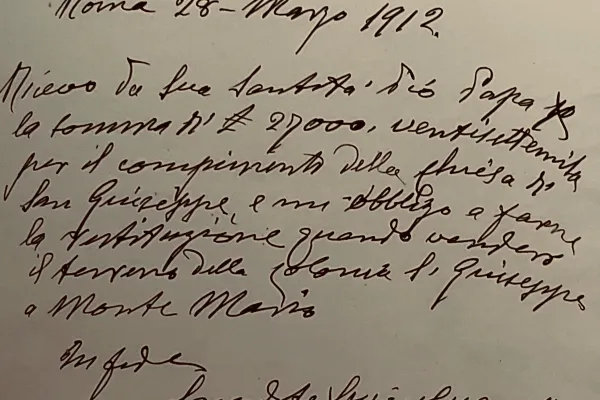 Roma 28 - Marzo 1912.
Ricevo da Sua Santità Pio Papa
la somma di £ 27000. ventisettemila
per il compimento della Chiesa di
San Giuseppe, e mi obbligo a farne
la restituzione quando venderò
il terreno della Colonia S. Giuseppe
a Monte Mario
In fede